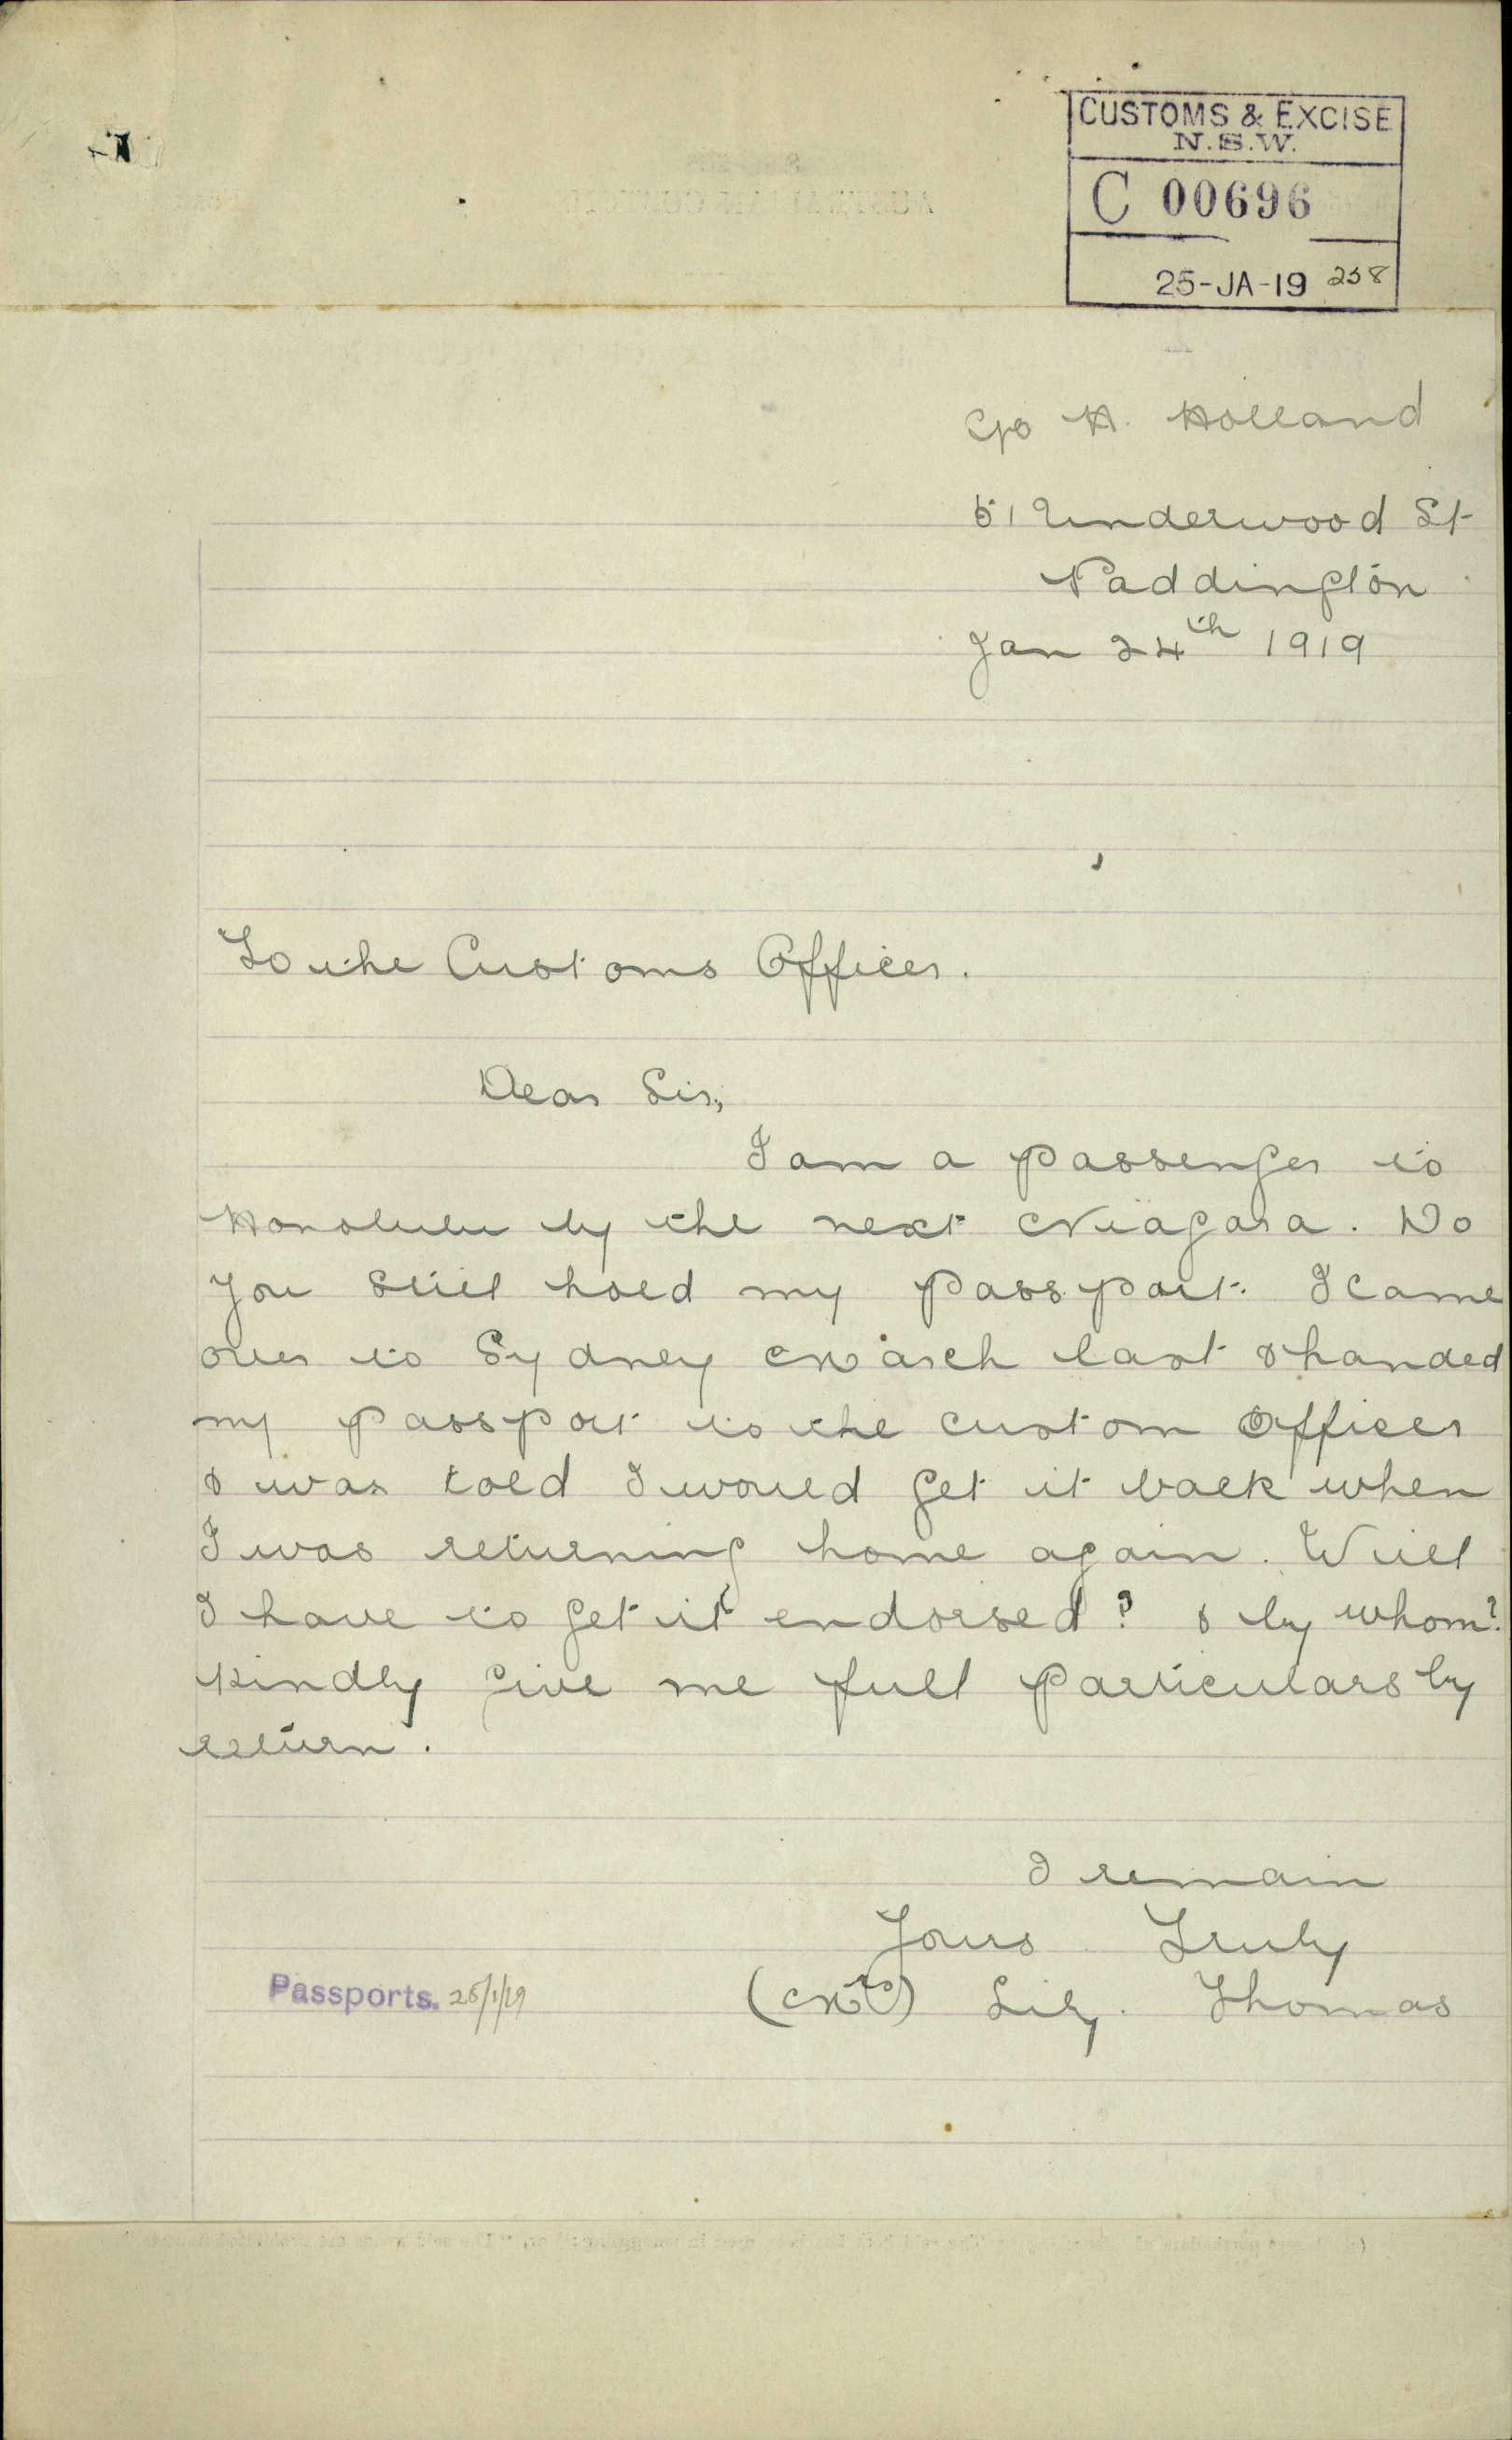 CUSTOMS & EXCISE
N.S.W.
C 00696
25-JA-19 258
C/o H. Holland
51 Underwood St
Paddington
Jan 24th 1919
To the Customs Officer.
Dear Sir,
I am a passenger to
Honolulu by the next Niagara. Do
you still hold my passport. I came
over to Sydney March last & handed
my passport to the custom Officer
& was told I would get it back when
I was returning home again. Will
I have to get it endorsed? & by whom?
Kindly give me full particulars by
return.
I remain
Yours Truly
(Mrs) Lily Thomas
Passports. 25/1/19